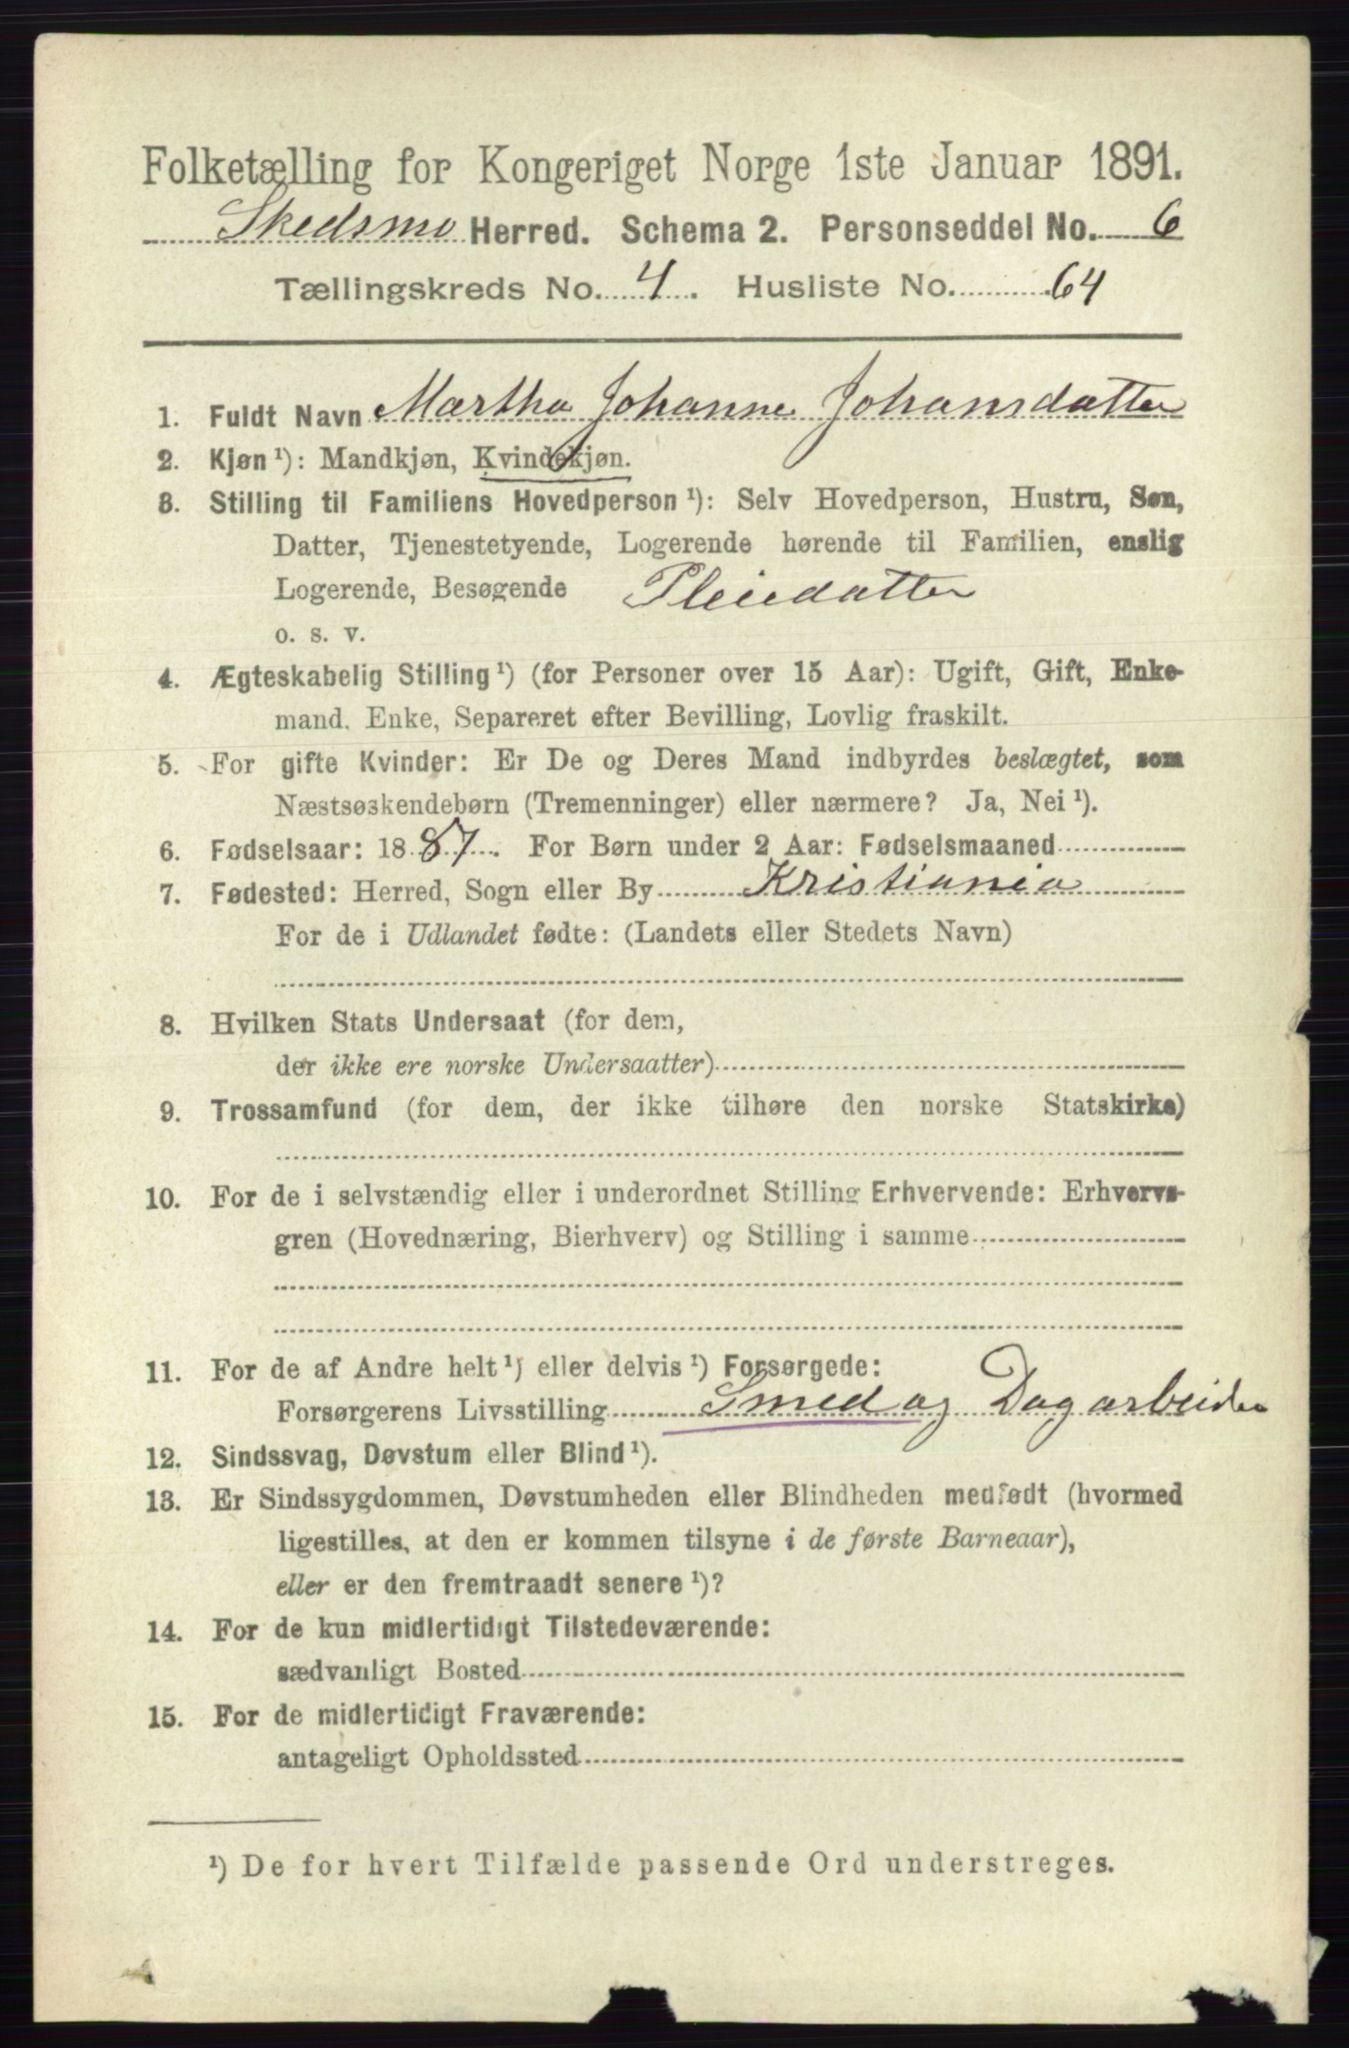 Folketælling for Kongeriget Norge 1ste Januar 1891.
Skedsmo Herred. Schema 2. Personseddel No. 6
Tællingskreds No. 4. Husliste No. 64
1. Fuldt Navn Martha Johanne Johansdatter
2. Kjøn ¹): Mandkjøn, Kvindekjøn.
3. Stilling til Familiens Hovedperson ¹): Selv Hovedperson, Hustru, Søn,
Datter, Tjenestetyende, Logerende hørende til Familien, enslig
Logerende, Besøgende Pleiedatter
o. s. v.
4. Ægteskabelig Stilling ¹) (for Personer over 15 Aar): Ugift, Gift, Enke-
mand. Enke, Separeret efter Bevilling, Lovlig fraskilt.
5. For gifte Kvinder: Er De og Deres Mand indbyrdes beslægtet, som
Næstsøskendebørn (Tremenninger) eller nærmere? Ja, Nei ¹).
6. Fødselsaar: 1887. For Børn under 2 Aar: Fødselsmaaned
7. Fødested: Herred, Sogn eller By Kristiania
For de i Udlandet fødte: (Landets eller Stedets Navn)
8. Hvilken Stats Undersaat (for dem,
der ikke ere norske Undersaatter)
9. Trossamfund (for dem, der ikke tilhøre den norske Statskirke)
10. For de i selvstændig eller i underordnet Stilling Erhvervende: Erhvervs-
gren (Hovednæring, Bierhverv) og Stilling i samme
11. For de af Andre helt ¹) eller delvis ¹) Forsørgede:
Forsørgerens Livsstilling Smed og Dagarbeider
12. Sindssvag, Døvstum eller Blind ¹).
13. Er Sindssygdommen, Døvstumheden eller Blindheden medfødt (hvormed
ligestilles, at den er kommen tilsyne i de første Barneaar),
eller er den fremtraadt senere ¹)?
14. For de kun midlertidigt Tilstedeværende:
sædvanligt Bosted
15. For de midlertidigt Fraværende:
antageligt Opholdssted
¹) De for hvert Tilfælde passende Ord understreges.